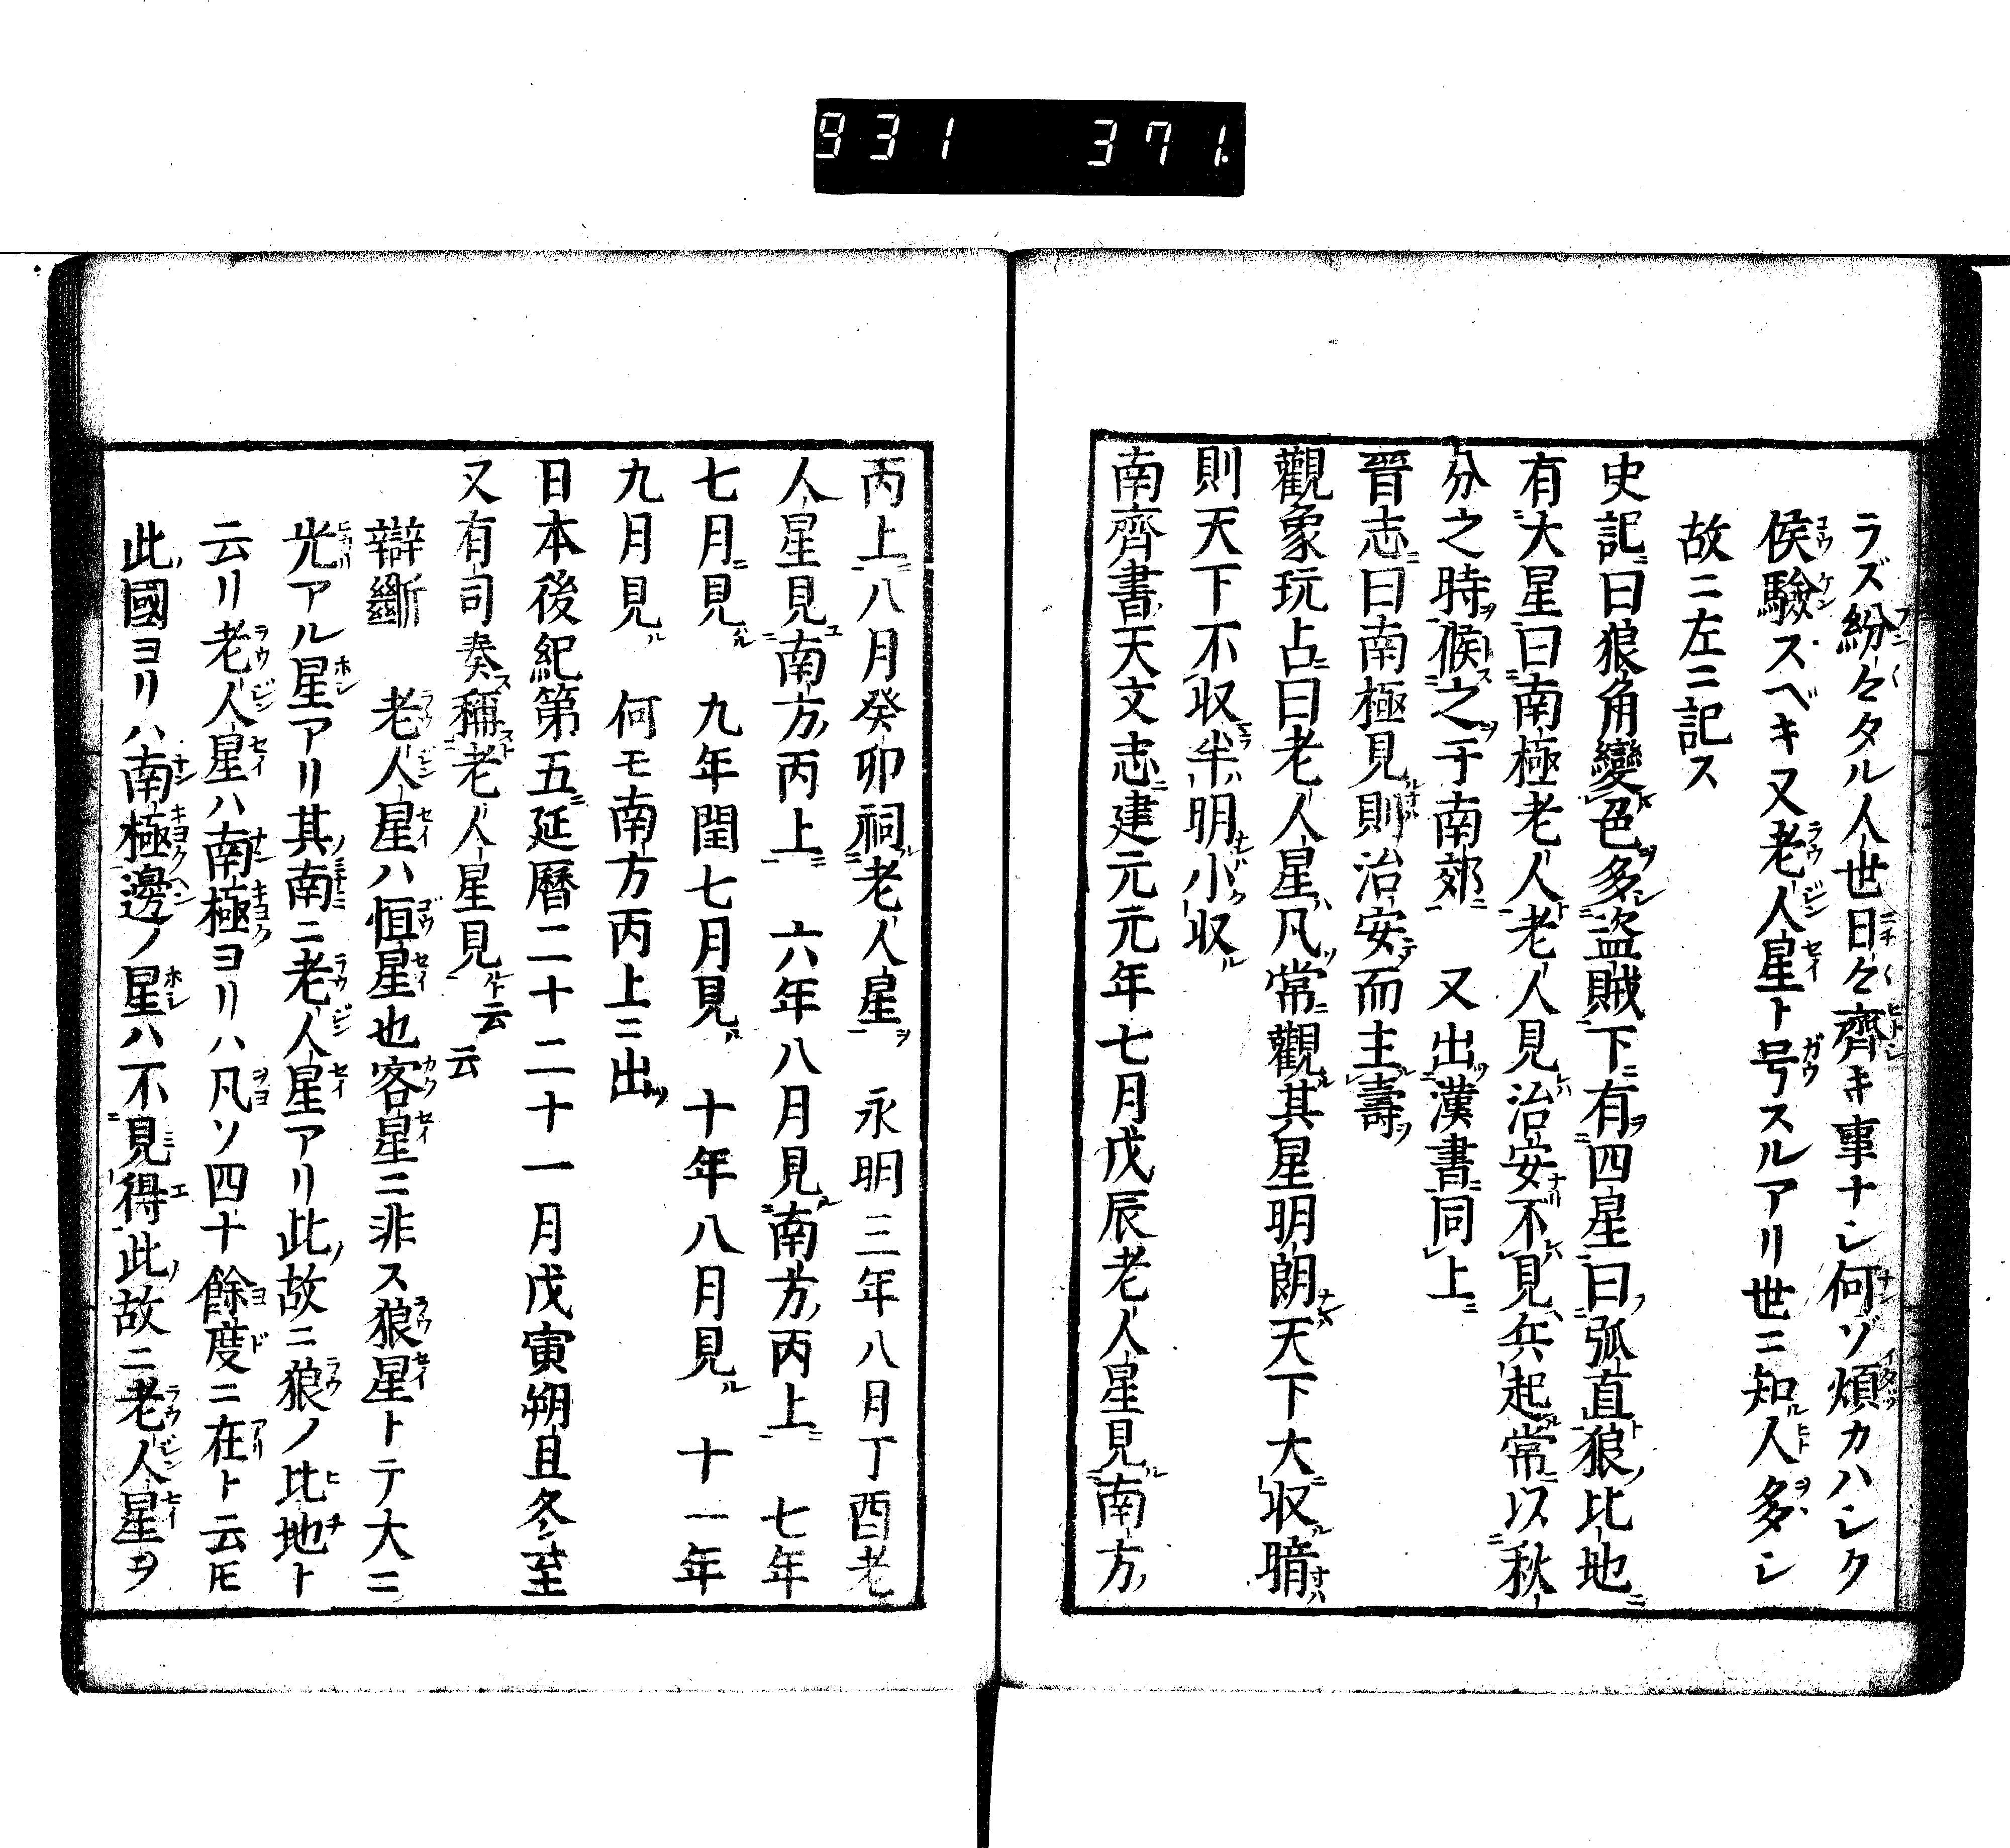 931 371
ラズ紛々タル人世日々齊キ事ナシ何ゾ煩カハシク
侯驗スベキ又老人星ト号スルアリ世ニ知人多シ
故ニ左ニ記ス
史記曰狼角變色多盗賊下有四星曰弧直狼比地
有大星曰南極老人老人見治安不見兵起常以秋
分之時候之于南郊 又出漢書同上
晉志曰南極見則治安而主壽
觀象玩占曰老人星凡常觀其星明朗天下大収暗
則天下不収半明小収
南齊書天文志建元元年七月戊辰老人星見南方
丙上八月癸卯祠老人星 永明三年八月丁酉老
人星見南方丙上 六年八月見南方丙上 七年
七月見 九年閏七月見 十年八月見 十一年
九月見 何モ南方丙上ニ出
日本後紀第五延暦二十二十一月戊寅朔旦冬至
又有司奏稱老人星見云云
辯斷 老人星ハ恒星也客星ニ非ス狼星トテ大ニ
光アル星アリ其南ニ老人星アリ此故ニ狼ノ比地ト
云リ老人星ハ南極ヨリハ凡ソ四十餘度ニ在ト云𪜈
此國ヨリハ南極邊ノ星ハ不見得此故ニ老人星ヲ